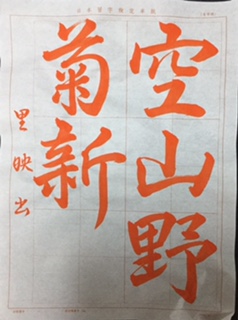 空山野
菊新
里映出